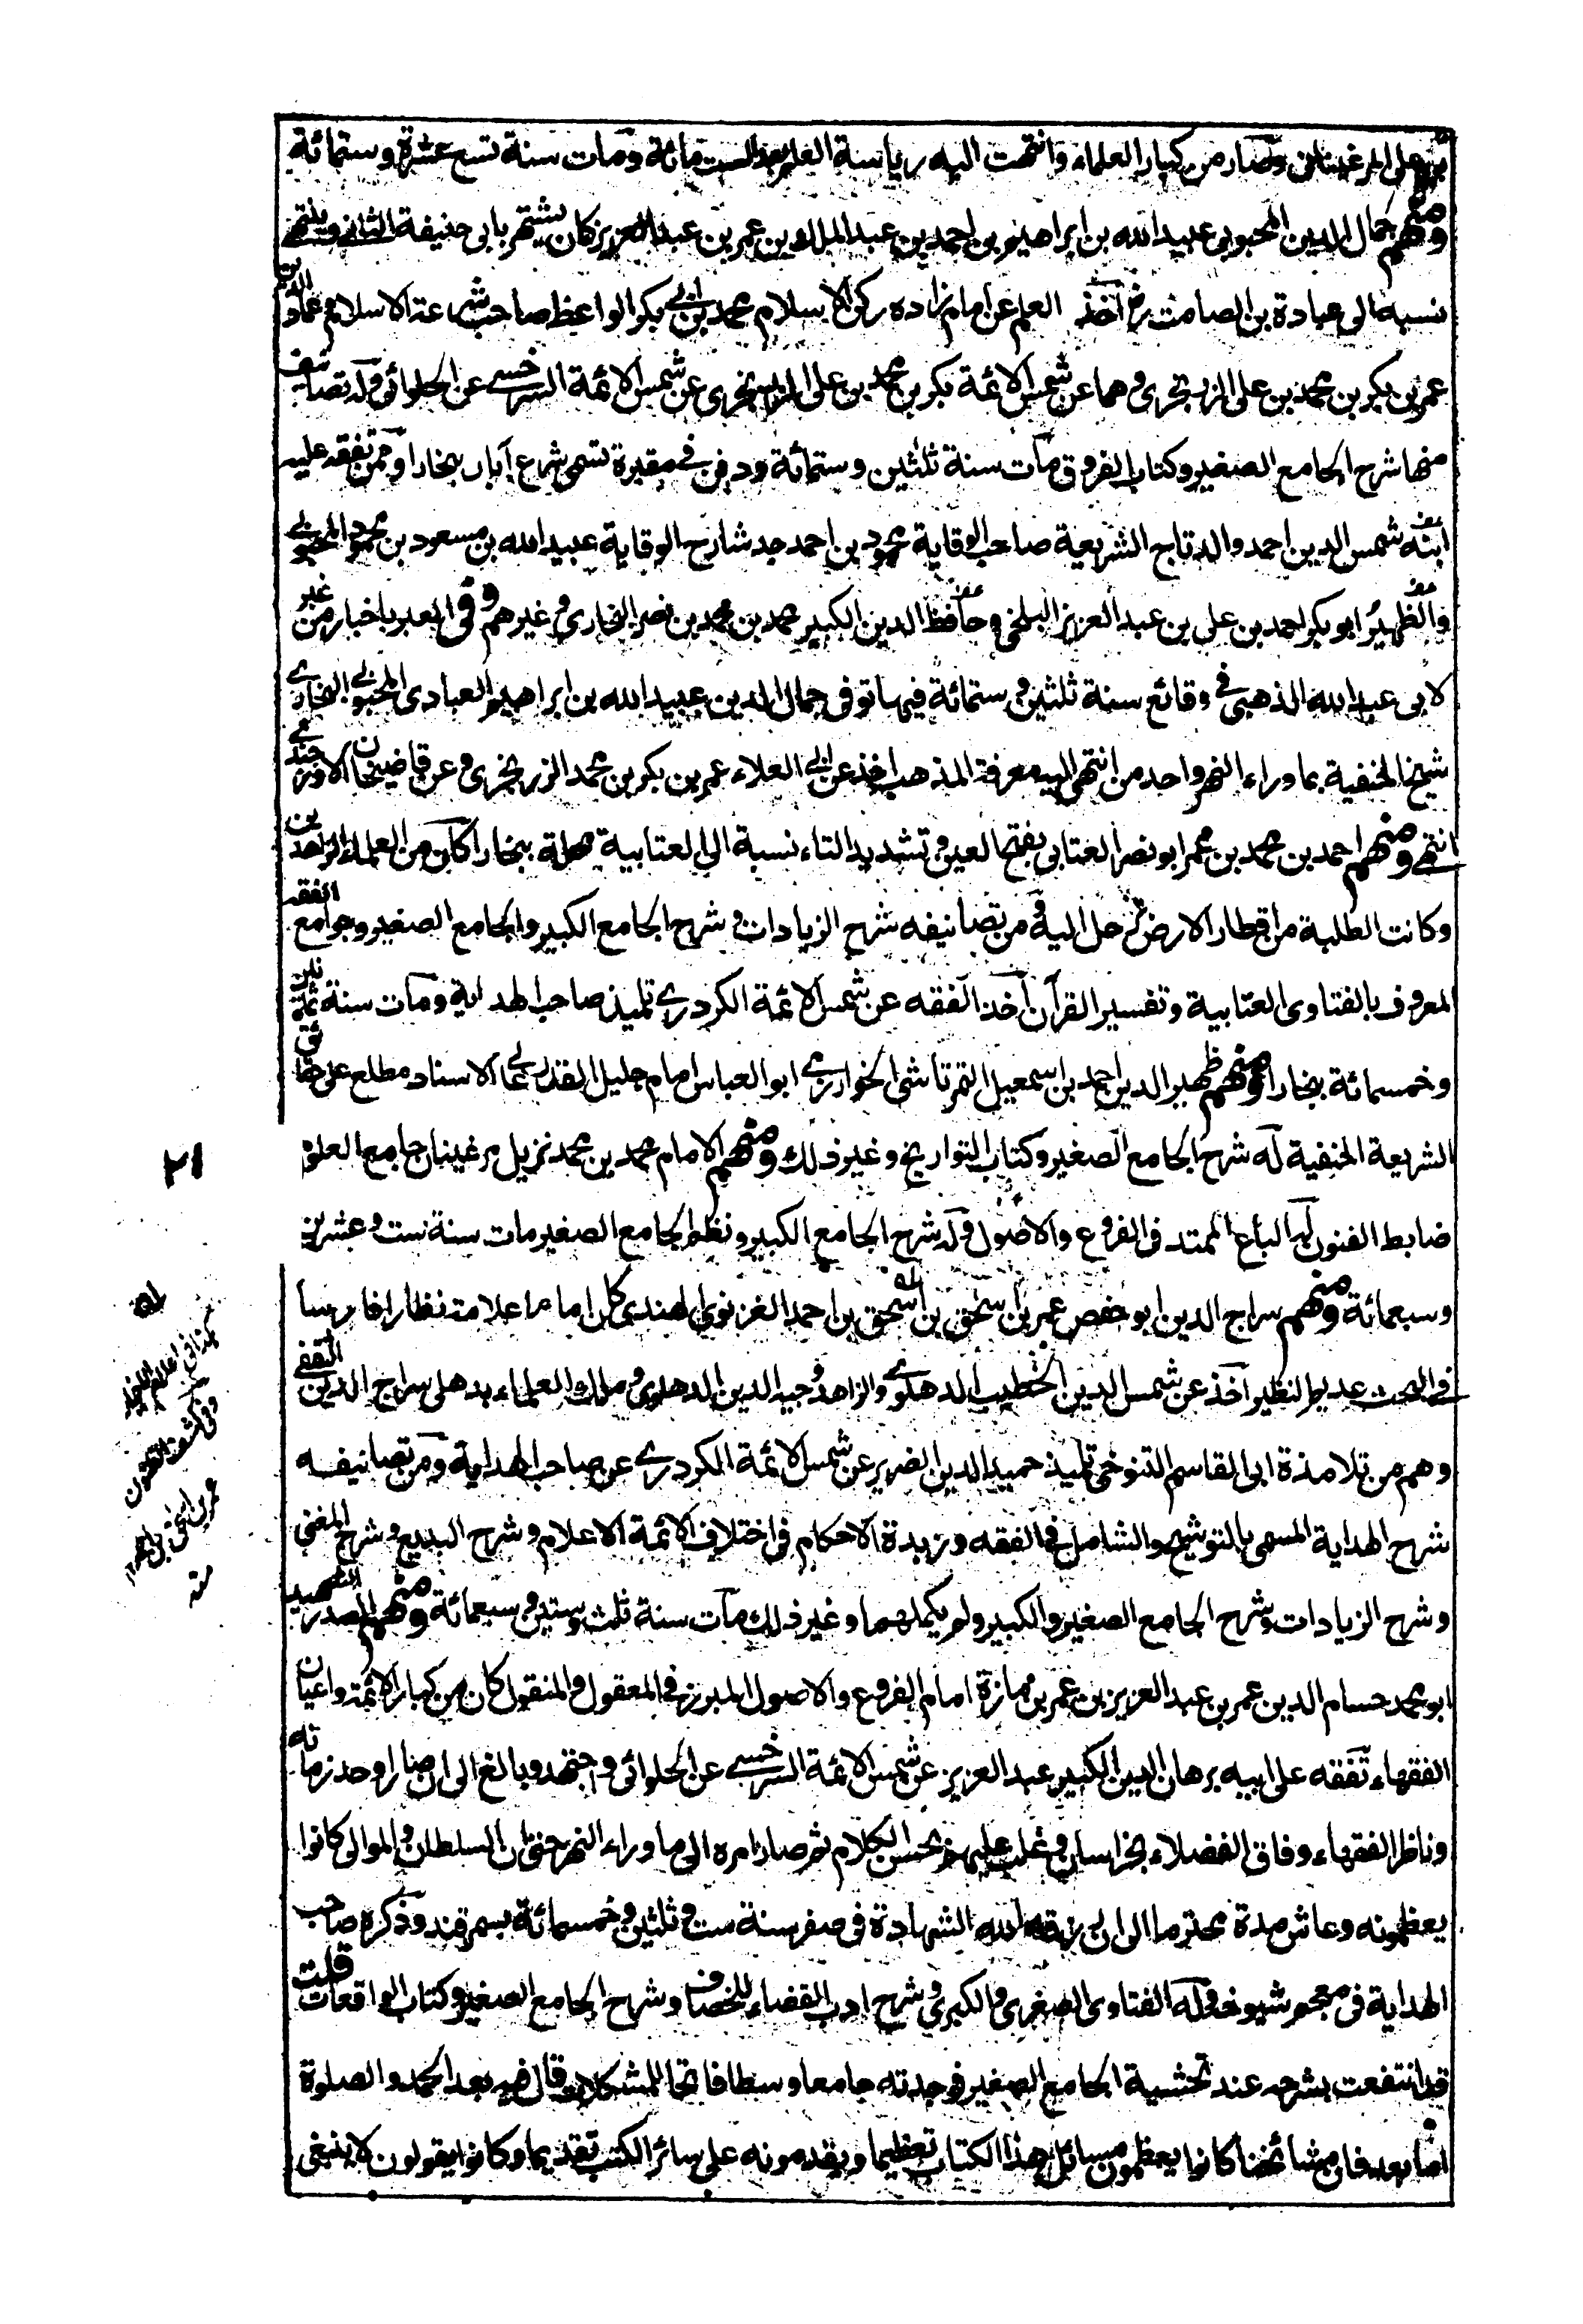 بن على المرغينانى وصار من كبار العلماء وانتهت اليه رياسة العلم بعد الست مائة ومات سنة تسع عشرة وستمائة
ومنهم جمال الدين المحبوبى عبيد الله بن ابراهيم بن احمد بن عبد الملك بن عمر بن عبد العزيز كان يشتهر بابى حنيفة الثانى وينتهى
نسبه الى عبادة بن الصامت رض اخذ العلم عن امام زاده ركن الاسلام محمد بن ابى بكر الواعظ صاحب شرعة الاسلام وعماد الدين
عمر بن بكر بن محمد بن على الزرنجرى وهما عن شمس الائمة بكر بن محمد بن على الزرنجرى عن شمس الائمة السرخسى عن الحلوائى وله تصانيف
منها شرح الجامع الصغير وكتاب الفروق مات سنة ثلثين وستمائة ودفن فى مقبرة تسمى شرع آباد ببخارا وممن تفقه عليه
ابنه شمس الدين احمد والد تاج الشريعة صاحب الوقاية محمود بن احمد جد شارح الوقاية عبيد الله بن مسعود بن محمود المحبوبى
والظهير ابو بكر احمد بن على بن عبد العزيز البلخى وحافظ الدين الكبير محمد بن محمد بن نصر البخارى وغيرهم وفى العبر باخبار من غبر
لابى عبد الله الذهبى فى وقائع سنة ثلثين وستمائة فيها توفى جمال الدين عبيد الله بن ابراهيم العبادى المحبوبى البخارى
شيخ الحنفية بما وراء النهر واحد من انتهى اليه معرفة المذهب اخذ عن ابى العلاء عمر بن بكر بن محمد الزرنجرى وعن قاضيخان الاوزجندى
انتهى ومنهم احمد بن محمد بن عمر ابو نصر العتابى بفتح العين وتشديد التاء نسبة الى العتابية محلة ببخارا كان من العلماء الزاهدين
وكانت الطلبة من اقطار الارض ترحل اليه ومن تصانيفه شرح الزيادات وشرح الجامع الكبير والجامع الصغير وجوامع الفقه
المعروف بالفتاوى العتابية وتفسير القرآن اخذ الفقه عن شمس الائمة الكردرى تلميذ صاحب الهداية ومات سنة
وخمسمائة ببخارا ومنهم ظهير الدين احمد بن اسمعيل التمرتاشى الخوارزمى ابو العباس امام جليل القدر عالى الاسناد مطلع على حقائق
الشريعة الحنفية له شرح الجامع الصغير وكتاب التواريخ وغير ذلك ومنهم الامام محمد بن محمد نزيل مرغينان جامع العلوم
ضابط الفنون له الباع الممتد فى الفروع والاصول وله شرح الجامع الكبير ونظم الجامع الصغير مات سنة ست وعشرين
وسبعمائة ومنهم سراج الدين ابو حفص عمر بن اسحق بن اسحق بن احمد الغزنوى الهندى كان اماما علامة نظارا فارسا
فى البحث عديم النظير اخذ عن شمس الدين الخطيب الدهلوى والزاهد وجيه الدين الدهلوى وملك العلماء بدهلى سراج الدين الثقفى
وهم من تلامذة ابى القاسم التنوخى تلميذ حميد الدين الضرير عن شمس الائمة الكردرى عن صاحب الهداية ومن تصانيفه
شرح الهداية المسمى بالتوشيح والشامل فى الفقه وزبدة الاحكام فى اختلاف الائمة الاعلام وشرح البديع وشرح المغنى
وشرح الزيادات وشرح الجامع الصغير والكبير ولم يكملهما وغير ذلك مات سنة ثلث وستين وسبعمائة ومنهم الصدر الشهيد
ابو محمد حسام الدين عمر بن عبد العزيز بن عمر بن مازة امام الفروع والاصول المبرز فى المعقول والمنقول كان من كبار الائمة واعيان
الفقهاء تفقه على ابيه برهان الدين الكبير عبد العزيز عن شمس الائمة السرخسى عن الحلوائى واجتهد وبالغ الى ان صار اوحد زمانه
وناظر الفقهاء وفاق الفضلاء بخراسان وغلب عليهم بحسن الكلام ثم صار امره الى ما وراء النهر حتى ان السلطان والموالى كانوا
يعظمونه وعاش مدة محترما الى ان رزقه الله الشهادة فى صفر سنة ست وثلثين وخمسمائة بسمرقند وذكره صاحب
الهداية فى معجم شيوخه وله الفتاوى الصغرى والكبرى وشرح ادب القضاء للخصاف وشرح الجامع الصغير وكتاب الواقعات قلت
قد انتفعت بشرحه عند تحشية الجامع الصغير فوجدته جامعا وسطا فاتحا للمشكلات قال فيه بعد الحمد والصلوة
اما بعد فان مشائخنا كانوا يعظمون مسائل هذا الكتاب تعظيما ويقدمونه على سائر الكتب تقديما وكانوا يقولون لا ينبغى
٢١
له
وفى كشف الظنون
عمر بن اسحق بن احمد ١٢
منه